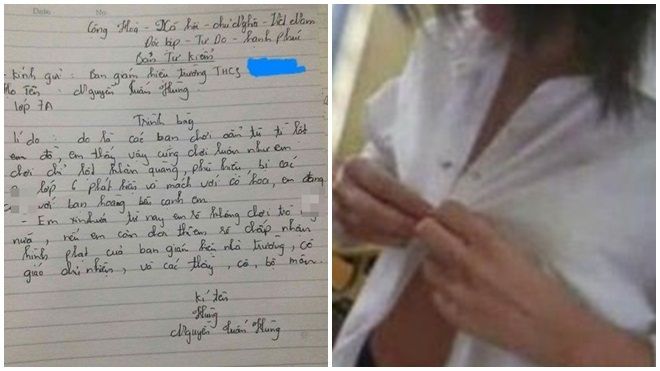 Date No
Cộng Hoà - Xã hội - chủ Nghĩa - Việt Nam
Độc lập - Tự Do - hạnh phúc
Bản Tự kiểm
- kính gửi : Ban giám hiệu trường THCS
Họ Tên : Nguyễn Tuấn Hùng
lớp 7A
Trình bày
lí do : do là các bạn chơi oẳn tù tì lột
em đồ, em thấy vậy cũng chơi luôn như em
chơi chỉ lột khăn quang, phù hiệu bị các
lớp 6 phát hiện và mách với cô hoa, em đang
với bạn hoàng bảo cạnh em
- Em xin hứa từ nay em sẽ không chơi trò
nữa, nếu em còn chơi thêm sẽ chấp nhận
hình phạt của ban giám hiệu nhà trường, cô
giáo chủ nhiệm, và các thầy, cô, bộ môn.
kí tên
Hùng
Nguyễn Tuấn Hùng